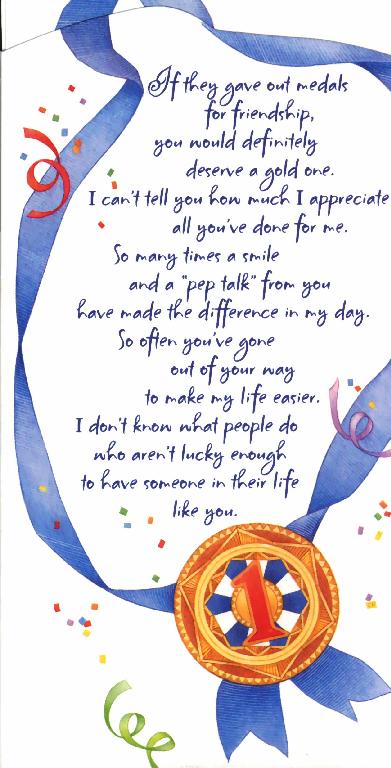 If they gave out medals
for friendship,
you would definitely
deserve a gold one.
I can't tell you how much I appreciate
all you've done for me.
So many times a smile
and a "pep talk" from you
have made the difference in my day.
So often you've gone
out of your way
to make my life easier.
I don't know what people do
who aren't lucky enough
to have someone in their life
like you.
1